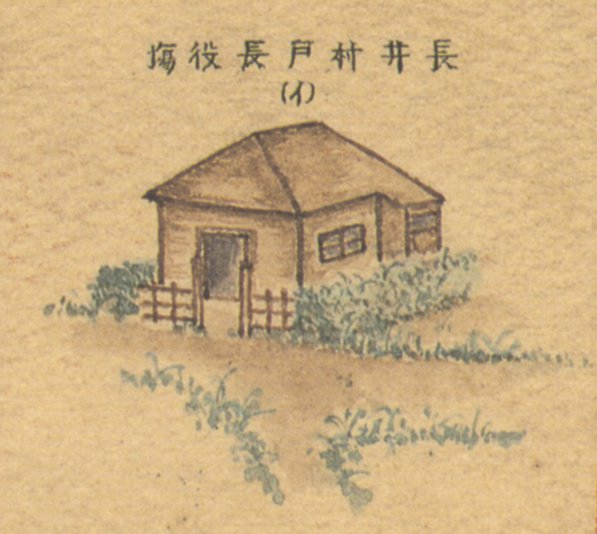 長井村戸長役場
(イ)